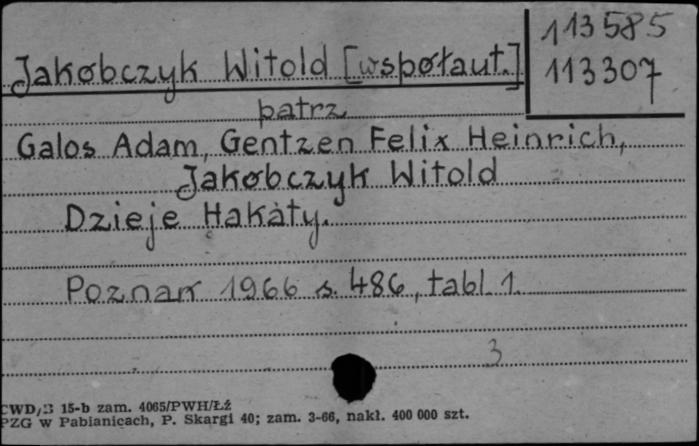 113585
Jakóbczyk Witold [współaut.]
113307
patrz
Galos Adam, Gentzen Felix Heinrich,
Jakóbczyk Witold
Dzieje Hakaty.
Poznań 1966 s. 486, tabl. 1.
3
CWD/3 15-b zam. 4065/PWH/Łź
PZG w Pabianicach, P. Skargi 40; zam. 3-66, nakł. 400 000 szt.